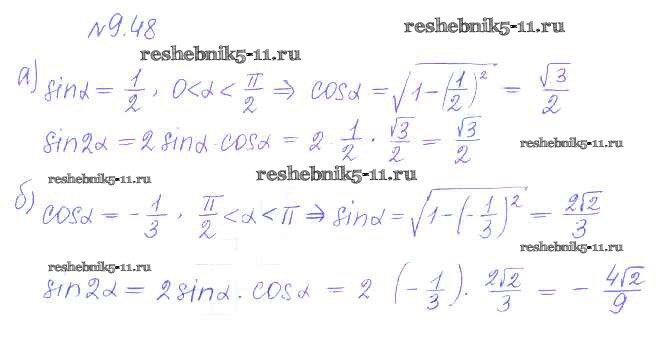 №9.48
reshebnik5-11.ru
reshebnik5-11.ru
а) sinα = 1/2, 0<α<π/2 ⇒ cosα = √(1-(1/2)²) = √3/2
sin2α = 2 sinα·cosα = 2·1/2·√3/2 = √3/2
reshebnik5-11.ru
reshebnik5-11.ru
reshebnik5-11.ru
б) cosα = -1/3, π/2<α<π ⇒ sinα = √(1-(-1/3)²) = 2√2/3
reshebnik5-11.ru
reshebnik5-11.ru
sin2α = 2 sinα·cosα = 2 (-1/3)·2√2/3 = -4√2/9